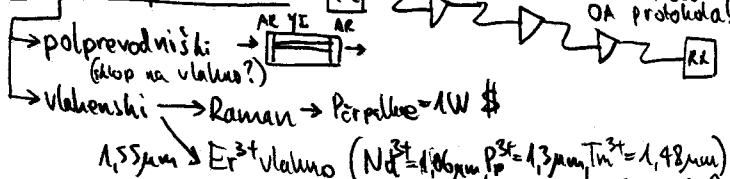 AR YI AR
OA protokola!
polprevodniški
RX
(sklop na vlakno?)
vlakenski → Raman → Pčrpalke=1W $
1,55μm Er³⁺ vlakno (Nd³⁺=1,06μm, Pr³⁺=1,3μm, Tm³⁺=1,48μm)